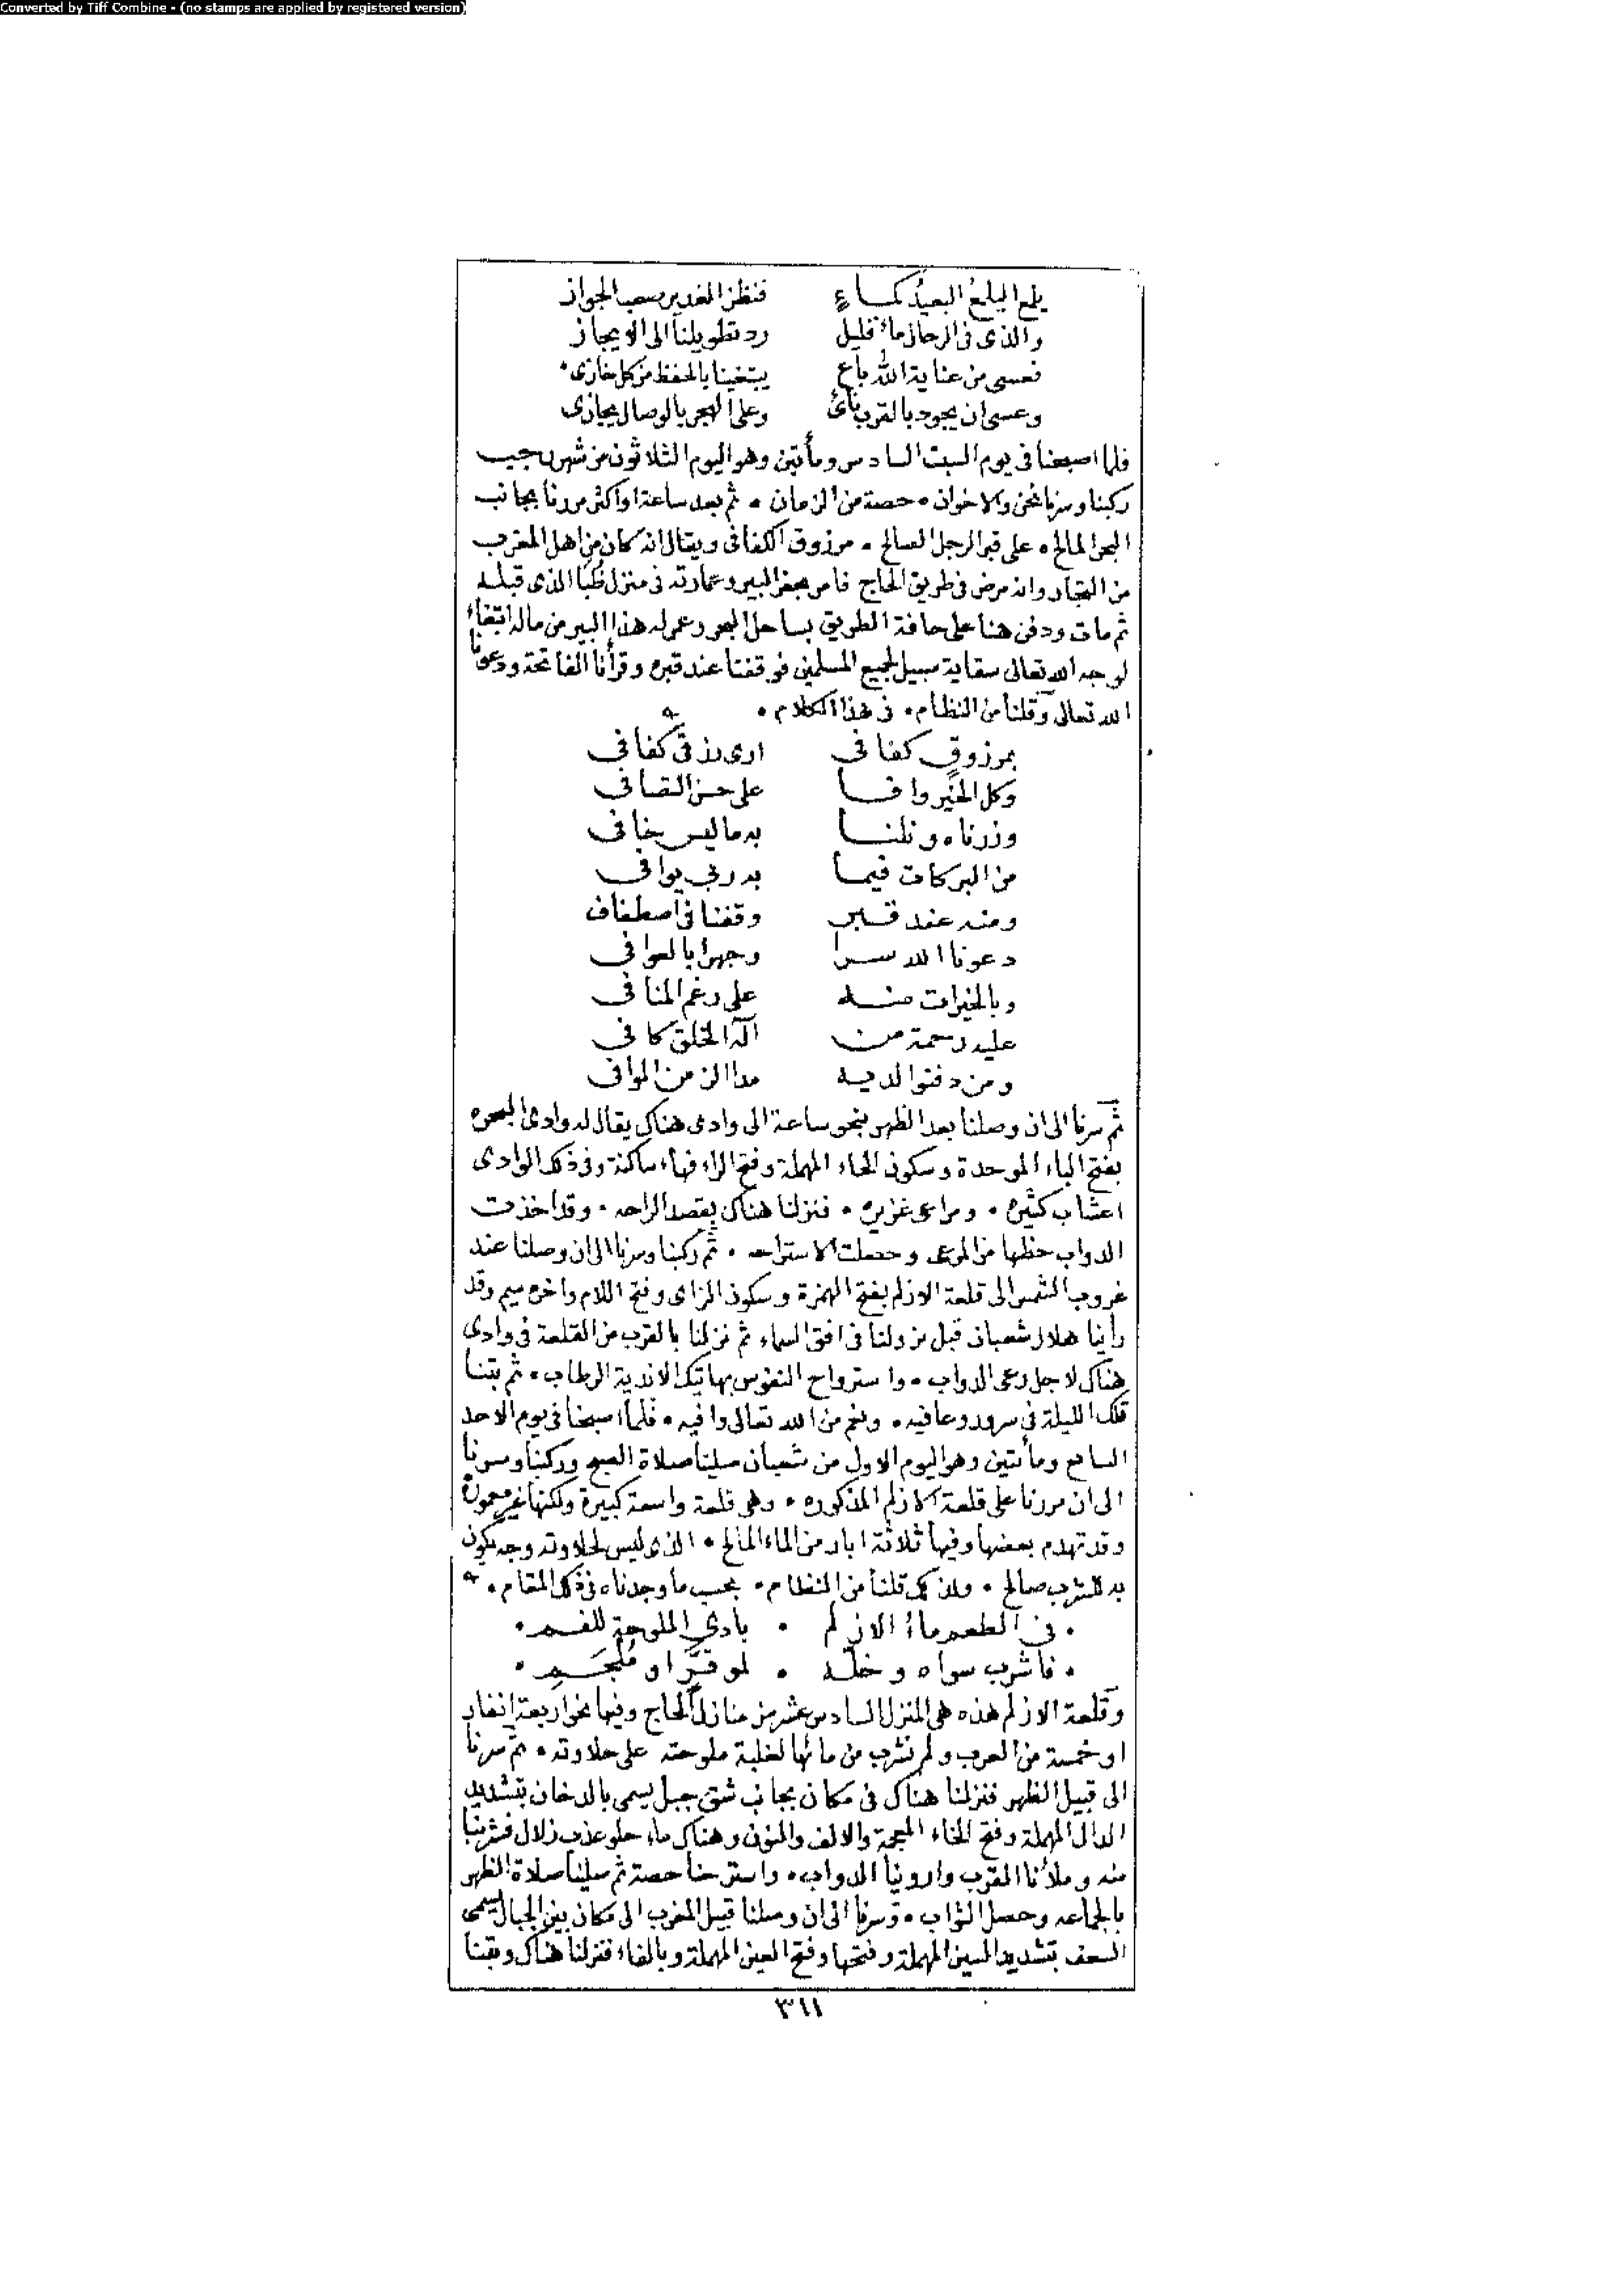 Converted by Tiff Combine - (no stamps are applied by registered version)
يلمع البلقع البعيد كماء فنظن الغدير صعب الجواز
والذى فى الرحال ماء قليل رد تطويلنا الى الايجاز
فعسى من عناية الله باع يبتغينا بالحفظ من كل غازى
وعسى ان يجود بالقرب نائ وعلى الهجر بالوصال يجازى
فلما اصبحنا فى يوم السبت السادس ومأتين وهو اليوم الثلاثون من شهر رجب
ركبنا وسرنا نحن والاخوان • حصة من الزمان • ثم بعد ساعة او اكثر مررنا بجانب
البحر المالح • على قبر الرجل الصالح • مرزوق الكفافى ويقال انه كان من اهل المغرب
من التجار وانه مرض فى طريق الحاج فامر بحفر البير وعمارته فى منزل ظُبَا الذى قبله
ثم مات ودفن هنا على حافة الطريق بساحل البحر وعمر له هذا البير من ماله ابتغاء
لوجه الله تعالى سقاية سبيل لجميع المسلمين فوقفنا عند قبره وقرأنا الفاتحة ودعونا
الله تعالى وقلنا من النظام • فى هذا الكلام •
بمرزوقٍ كفافى ارى رزقى كفافى
وكل الخير وافا على حسن التصافى
وزرناه ونلنا به ما ليس خافى
من البركات فيما به ربى يوافى
ومنه عند قبر وقفنا فى اصطفاف
دعونا الله سرا وجهرا بالعوافى
وبالخيرات منه على رغم المنافى
عليه رحمة من اله الخلق كافى
ومن دفنوا لديه مدا الزمن الموافى
ثم سرنا الى ان وصلنا بعد الظهر بنحو ساعة الى وادى هناك يقال له وادى البحره
بفتح الباء الموحدة وسكون الحاء المهملة وفتح الراء فهاء ساكنة وفى ذلك الوادى
اعشاب كثيره • ومراعى غزيره • فنزلنا هناك بقصد الراحه • وقد اخذت
الدواب حظها من المرعى وحصلت الاستراحه • ثم ركبنا وسرنا الى ان وصلنا عند
غروب الشمس الى قلعة الازلم بفتح الهمزة وسكون الزاى وفتح اللام واخره ميم وقد
رأينا هلال شعبان قبل نزولنا فى افق السماء ثم نزلنا بالقرب من القلعة فى وادى
هناك لاجل رعى الدواب • واسترواح النفوس بهاتيك الاندية الرطاب • ثم بتنا
تلك الليلة فى سرور وعافيه • ونعم من الله تعالى وافيه • فلما اصبحنا فى يوم الاحد
السابع ومأتين وهو اليوم الاول من شعبان صلينا صلاة الصبح وركبنا وسرنا
الى ان مررنا على قلعة الازلم المذكوره • وهى قلعة واسعة كبيرة ولكنها غير معمورة
وقد تهدم بعضها وفيها ثلاثة ابار من الماء المالح • الذى ليس لحلاوته وجه يكون
به للشرب صالح • ولذلك قلنا من النظام • بحسب ما وجدناه فى ذلك المقام •
• فى الطعم ماءُ الازلم • بادى الملوحة للفم •
• فاشرب سواه وخله • لموقّر او مُلجم •
وقلعة الازلم هذه هى المنزل السادس عشر من منازل الحاج وفيها نحو اربعة انفار
او خمسة من العرب ولم نشرب من مائها لغلبة ملوحته على حلاوته • ثم سرنا
الى قبيل الظهر فنزلنا هناك فى مكان بجانب شق جبل يسمى بالدخان بتشديد
الدال المهملة وفتح الخاء المعجمة والالف والنون وهناك ماء حلو عذب زلال فشربنا
منه وملأنا القرب واروينا الدواب • واسترحنا حصة ثم صلينا صلاة الظهر
بالجماعه وحصل الثواب • وسرنا الى ان وصلنا قبيل المغرب الى مكان بين الجبال يسمى
السعف بتشديد السين المهملة وفتحها وفتح العين المهملة وبالفاء فنزلنا هناك وبتنا
٣١١